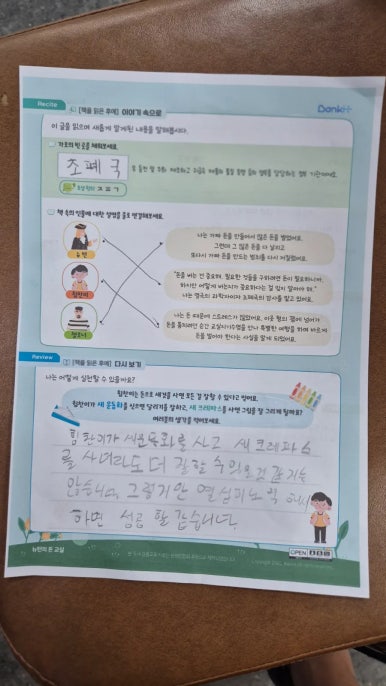 Recite
[책을 읽은 후에] 이야기 속으로
Bank
이 글을 읽으며 새롭게 알게된 내용을 말해봅시다.
가로의 빈 곳을 채워보세요.
조폐국
ㅈㅍㄱ
책 속의 인물에 대한 설명을 줄로 연결해보세요.
뉴턴
힘찬이
나는 가짜 돈을 만들어서 많은 돈을 벌었어요.
그런데 그 많은 돈을 다 날리고
또다시 가짜 돈을 만드는 범죄를 다시 저질렀어요.
"돈을 버는 건 중요해. 필요한 것들을 구하려면 돈이 필요하니까.
하지만 어떻게 버는지가 중요하다는 걸 잊지 말아야 해."
나는 영국의 과학자이자 조폐국의 감사를 맡고 있어요.
나는 돈 때문에 스트레스가 많았어요. 이웃 형의 꼬임에 넘어가
돈을 벌어야 한다는 사실을 알게 되었어요.
Review
[책을 읽은 후에] 다시 보기
나는 어떻게 실천할 수 있을까요?
힘찬이는 돈으로 새것을 사면 모든 걸 잘할 수 있다고 믿어요.
힘찬이가 새 운동화를 신으면 달리기를 잘하고, 새 크레파스를 사면 그림을 잘 그리게 될까요?
여러분의 생각을 적어보세요.
힘찬이가 새운동화를 사고 새 크레파스
를 사더라도 더 잘할 수 있을것 같지는
않습니다. 그렇지만 열심히 노력
하면 성공 할 같습니다.
뉴턴의 돈 교실
OPEN